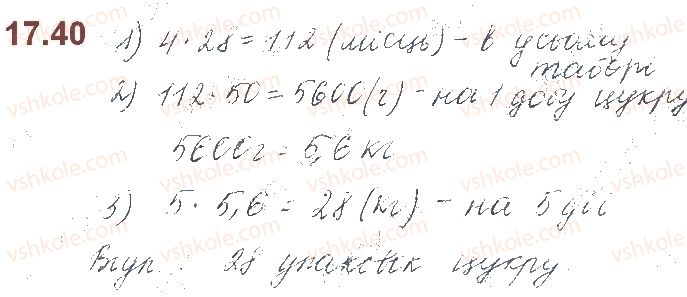 17.40
1) 4 · 28 = 112 (місць) - в усьому
таборі
2) 112 · 50 = 5600 (г) - на 1 добу цукру
5600 г = 5,6 кг
3) 5 · 5,6 = 28 (кг) - на 5 дії
Відп 28 упаковок цукру
vshkole.com